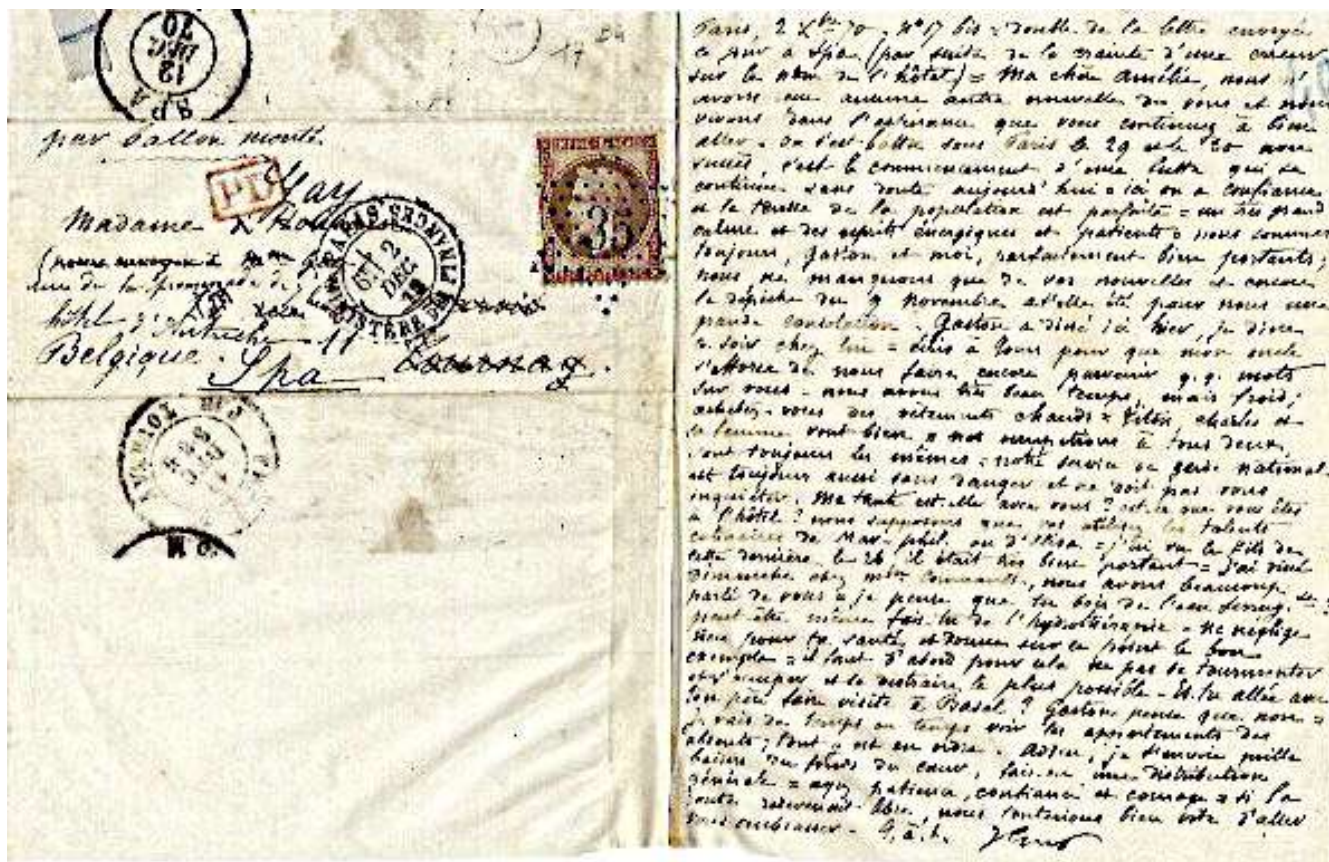 SPA
12
DEC
70
17
par Ballon monté.
PD
May
Madame
MINISTÈRE DE FINANCES
2
DEC
35
rue de la promenade de
hôtel d'Autriche
Belgique. Spa Tournay.
TOURNAY
Paris, 2 Xbre 70. N° 17 bis = double de la lettre envoyée
ce jour à Spa (par suite de la crainte d'une erreur
sur le nom de l'hôtel) = Ma chère Amélie, nous n'
avons eu aucune autre nouvelle de vous et nous
vivons dans l'espérance que vous continuez à bien
aller. On s'est battu sous Paris le 29 et le 30 avec
succès, c'est le commencement d'une lutte qui se
continue sans doute aujourd'hui = ici on a confiance
et la tenue de la population est parfaite = un très grand
calme et des esprits énergiques et patients = nous sommes
toujours, Gaston et moi, parfaitement bien portants;
nous ne manquons que de vos nouvelles et encore
la dépêche du 9 novembre a-t-elle été pour nous une
grande consolation. Gaston a dîné ici hier, je dîne
ce soir chez lui = écris à Tours pour que mon oncle
s'efforce de nous faire encore parvenir q.q. mots
sur vous - nous avons très beau temps, mais froid;
achetez-vous des vêtements chauds = Charles et
sa femme vont bien = nos occupations à tous deux
sont toujours les mêmes = notre service de garde national
est toujours aussi sans danger et ne doit pas vous
inquiéter. Ma tante est-elle avec vous? est-ce que vous êtes
à l'hôtel? nous supposons que vous utilisez les talents
culinaires de ou d'Elisa = j'ai vu le fils de
cette dernière le 26 il était très bien portant = j'ai dîné
Dimanche chez nous avons beaucoup
parlé de vous = je pense que tu bois de l'eau
peut-être même fais-tu de l'hydrothérapie - ne néglige
rien pour ta santé et donne sur ce point le bon
exemple = il faut d'abord pour cela ne pas se tourmenter
et s'occuper et se distraire le plus possible - Es-tu allée avec
ton père faire visite à Basel? Gaston pense que non =
je vais de temps en temps voir les appartements des
absents; tout est en ordre. Adieu, je t'envoie mille
baisers du fond du cœur, fais-en une distribution
générale = ayez patience, confiance et courage = si la
route redevenait libre, nous tenterions bien vite d'aller
vous embrasser - G. à t.